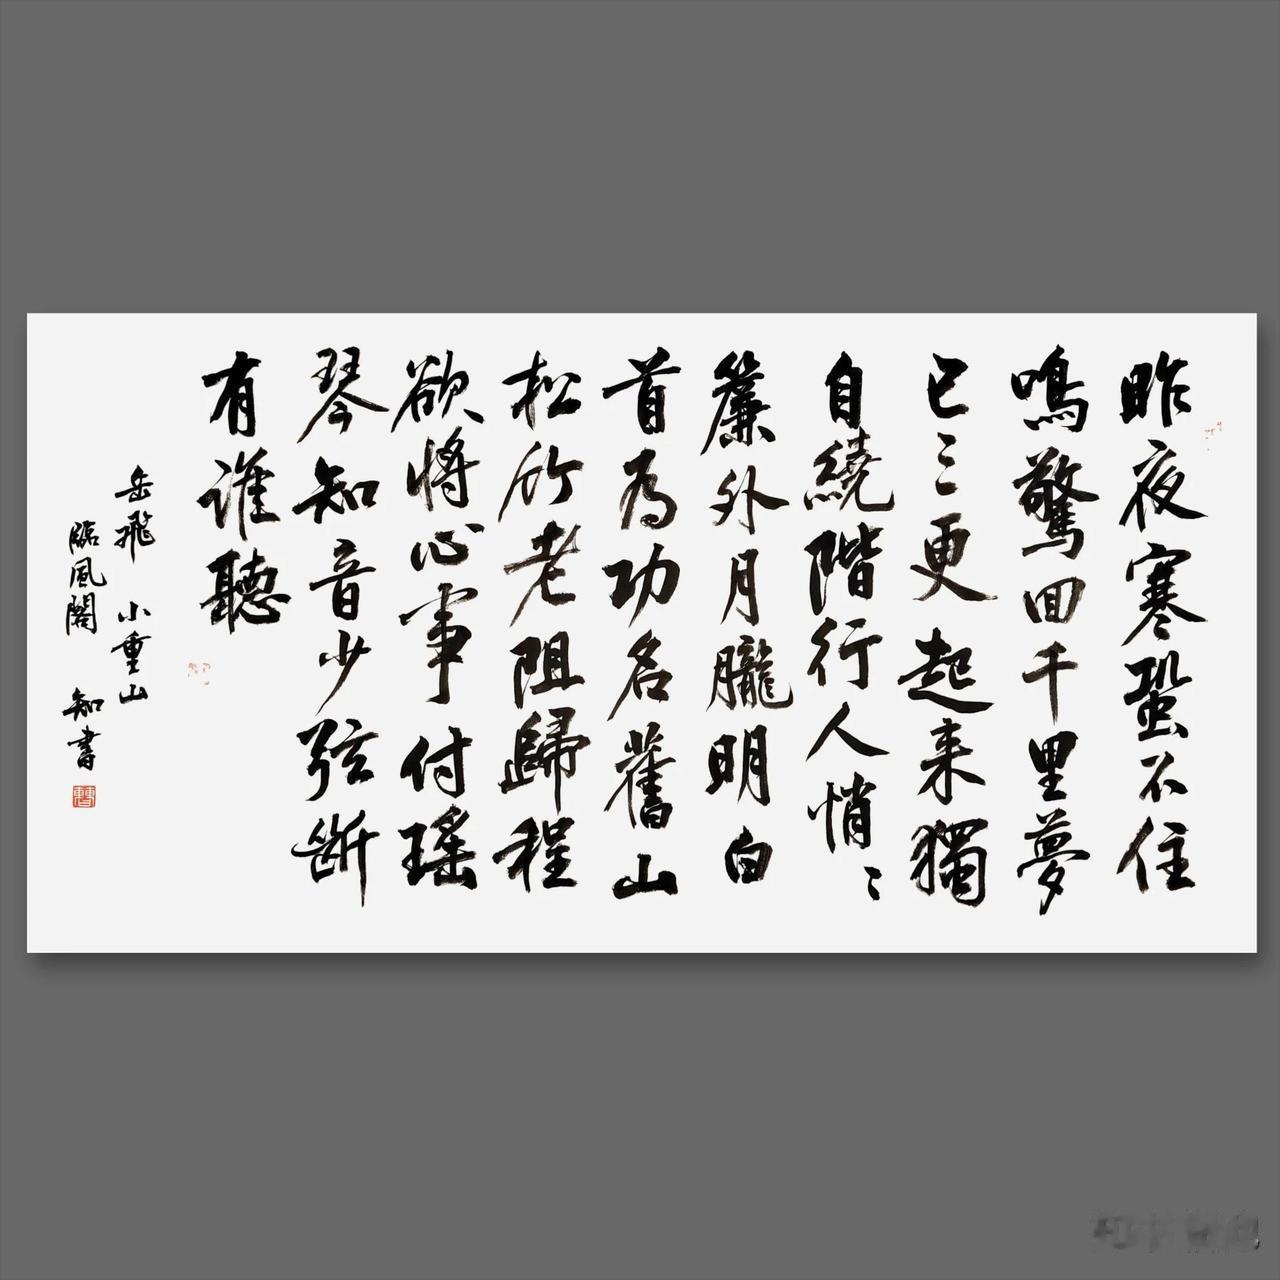 昨夜寒蛩不住
鳴驚回千里夢
已三更起来獨
自繞階行人悄〻
簾外月朧明白
首為功名舊山
松竹老阻歸程
欲將心事付瑤
琴知音少弦斷
有誰聽
岳飛 小重山
臨風閣 知書